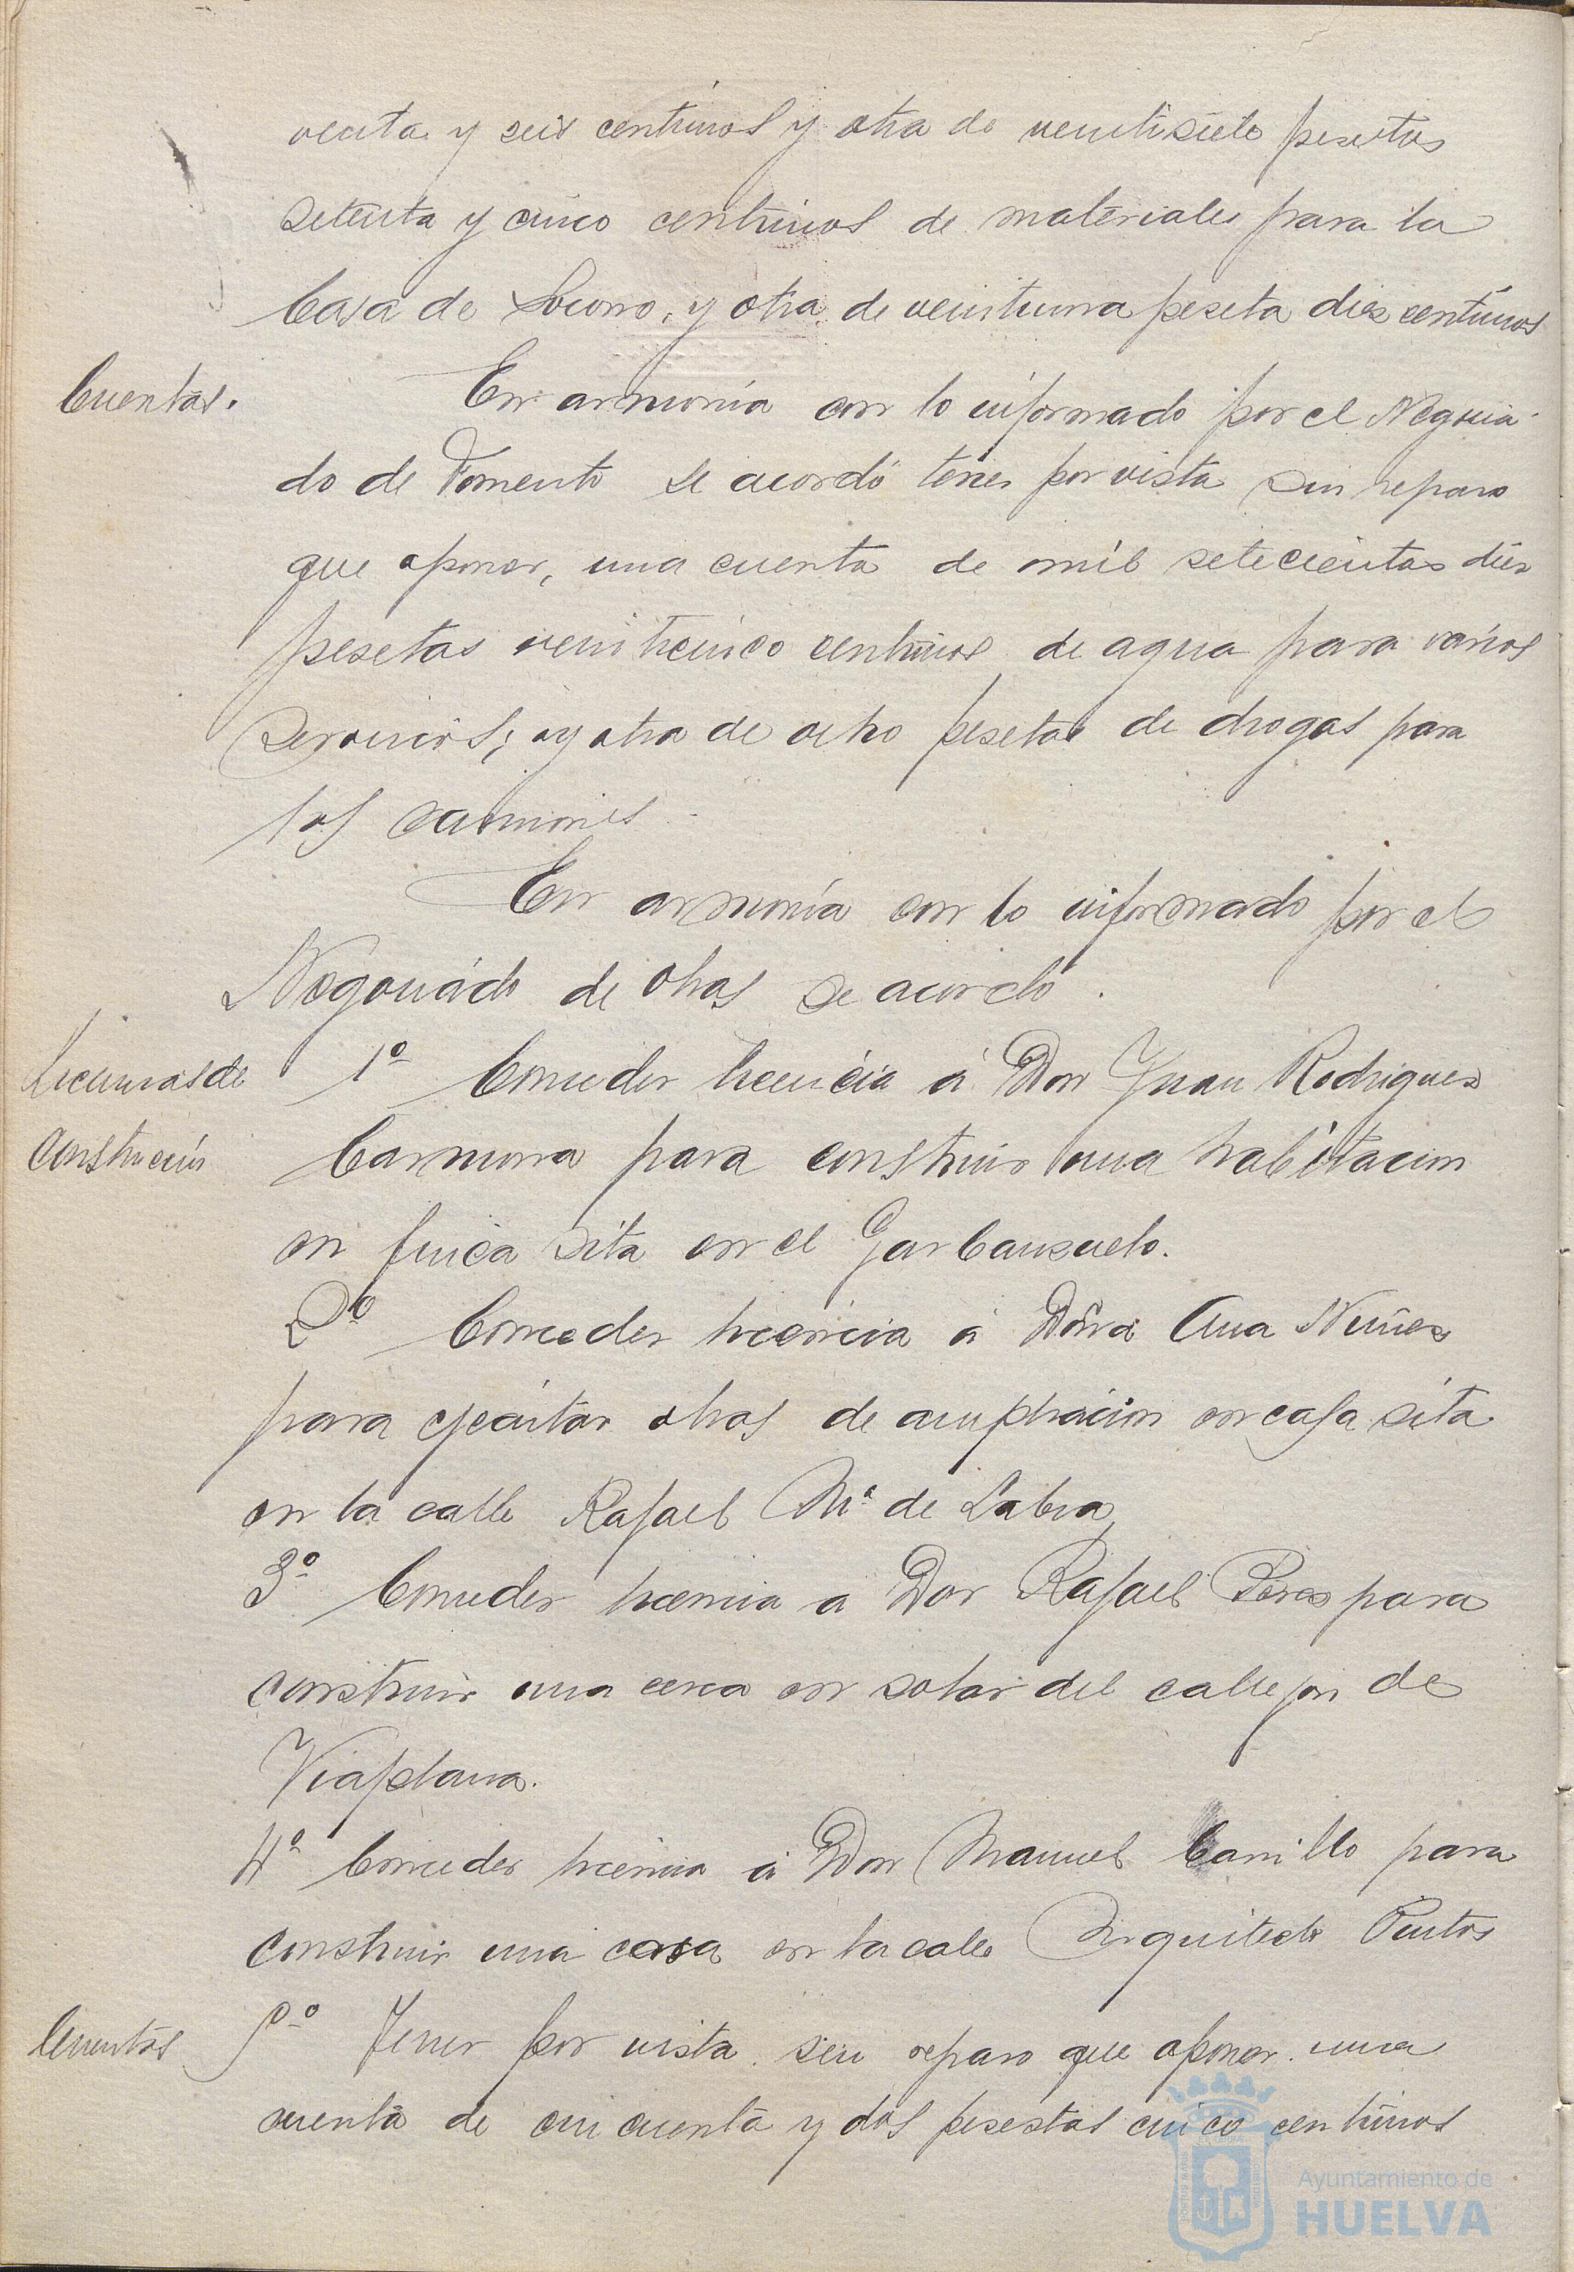 venta y seis centimos y otra de veintisiete pesetas
setenta y cinco centimos de materiales para la
Casa de Socorro, y otra de veintiuna peseta diez centimos
Cuentas.
En armonía con lo informado por el Negocia-
do de Fomento se acordó tener por vista sin reparo
que oponer, una cuenta de mil setecientas diez
pesetas veinticinco centimos de agua para varios
servicios; y otra de ocho pesetas de drogas para
los camiones.
En armonía con lo informado por el
Negociado de Obras se acordó.
Licencias de
construcción
1º Conceder licencia á Don Juan Rodriguez
Carmona para construir una habitacion
en finca sita en el Garbanzuelo.
2º Conceder licencia á Doña Ana Nuñez
para ejecutar obras de ampliacion en casa sita
en la calle Rafael Mª de Labra,
3º Conceder licencia a Don Rafael Perez para
construir una cerca en solar del callejon de
Viaplana.
4º Conceder licencia á Don Manuel Carrillo para
construir una casa en la calle Arquitecto Pintos
Cuentas
5º Tener por vista sin reparo que oponer una
cuenta de cincuenta y dos pesestas cinco centimos
Ayuntamiento de
HUELVA